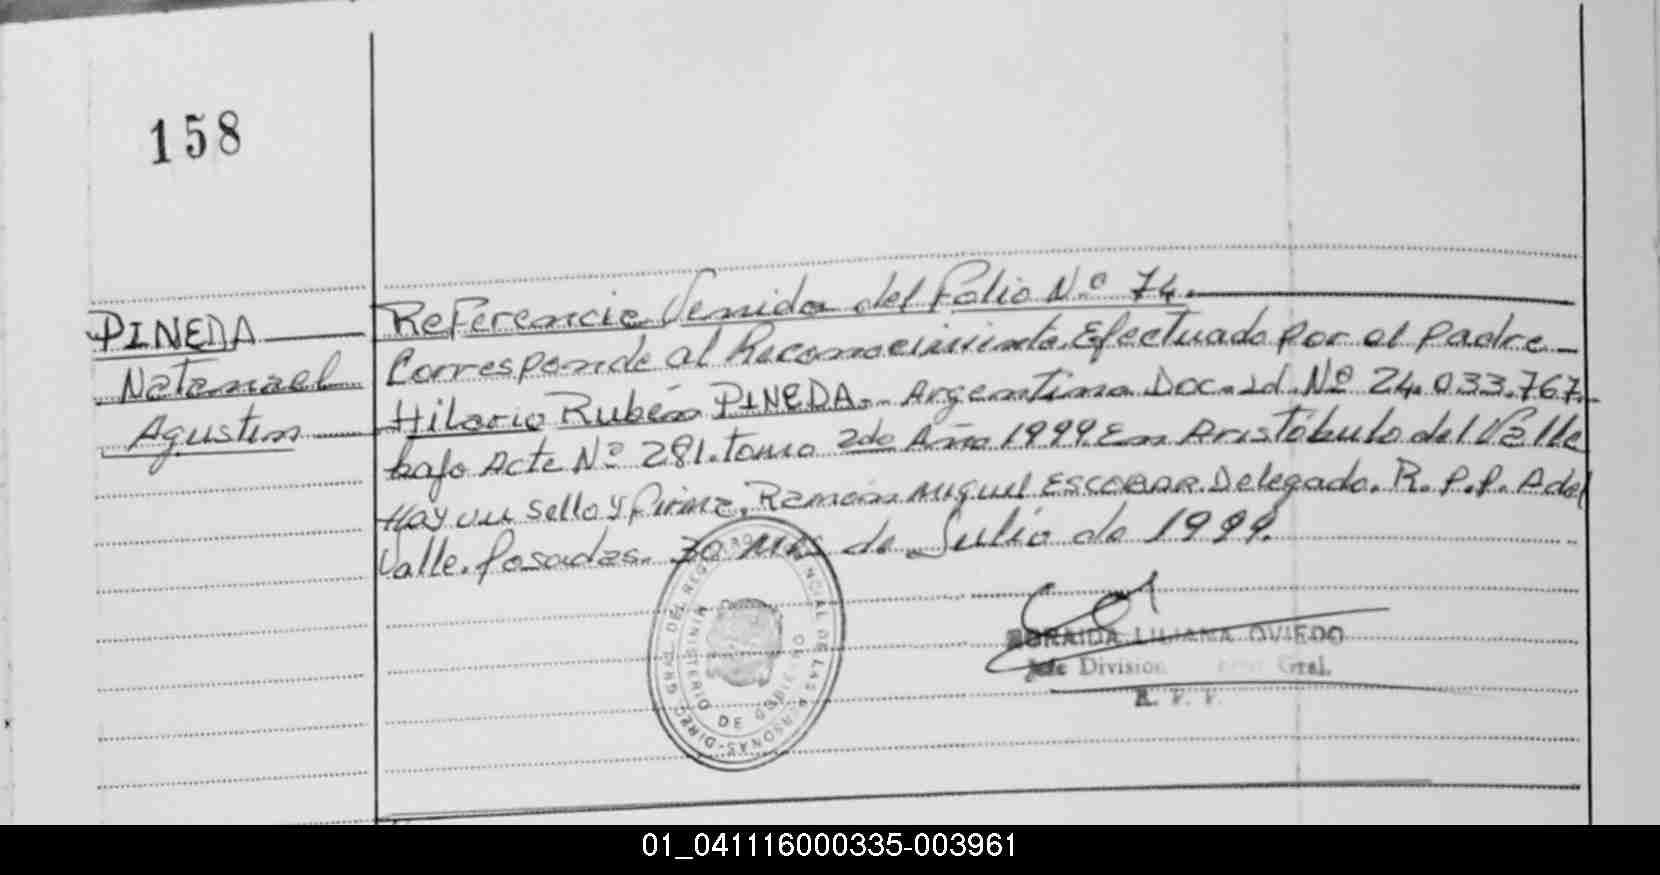 158
PINEDA
Natanael
Agustin
Referencia Venida del Folio Nº 74.
Corresponde al Reconocimiento Efectuado por el padre
Hilario Rubén PINEDA. Argentino Doc. Id. Nº 24.033.767.
bajo Acta Nº 281. tomo 2do Año 1999. En Aristóbulo del Valle
Hay un sello y firma. Ramón Miguel ESCOBAR. Delegado. R.P.P. A del
Valle. Posadas. 30 de Julio de 1999.
DIREC. GRAL DEL REG. PROVINCIAL DE LAS PERSONAS
MINISTERIO DE GOBIERNO
ZORAIDA LILIANA OVIEDO
Jefe Division Gral.
01_041116000335-003961